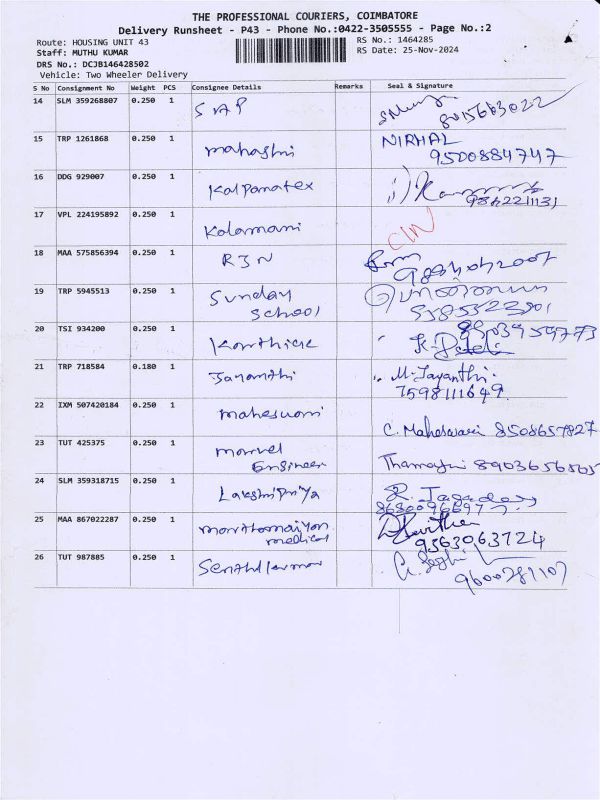 THE PROFESSIONAL COURIERS, COIMBATORE
Delivery Runsheet - P43 - Phone No.:0422-3505555 - Page No.:2
Route: HOUSING UNIT 43
RS No.: 1464285
Staff: MUTHU KUMAR
RS Date: 25-Nov-2024
DRS No.: DCJB146428502
Vehicle: Two Wheeler Delivery
S No Consignment No Weight PCS Consignee Details Remarks Seal & Signature
14 SLM 359268807 0.250 1 SAP
8015663022
15 TRP 1261868 0.250 1 mahashri NIRHAL
9500884747
16 DDG 929007 0.250 1 Kalpanatex
9842211131
17 VPL 224195892 0.250 1 Kalamani
18 MAA 575856394 0.250 1 RJN
19 TRP 5945513 0.250 1 Sunday
School
20 TSI 934200 0.250 1 Karthick
21 TRP 718584 0.180 1 Jayanthi M. Jayanthi.
7598111649
22 IXM 507420184 0.250 1 maheswari
C. Maheswari 8508657827
23 TUT 425375 0.250 1 marvel
Engineer
8903656565
24 SLM 359318715 0.250 1 Lakshmipriya
25 MAA 867022287 0.250 1
medical
9363063724
26 TUT 987885 0.250 1 Senthilkumar
9600781107